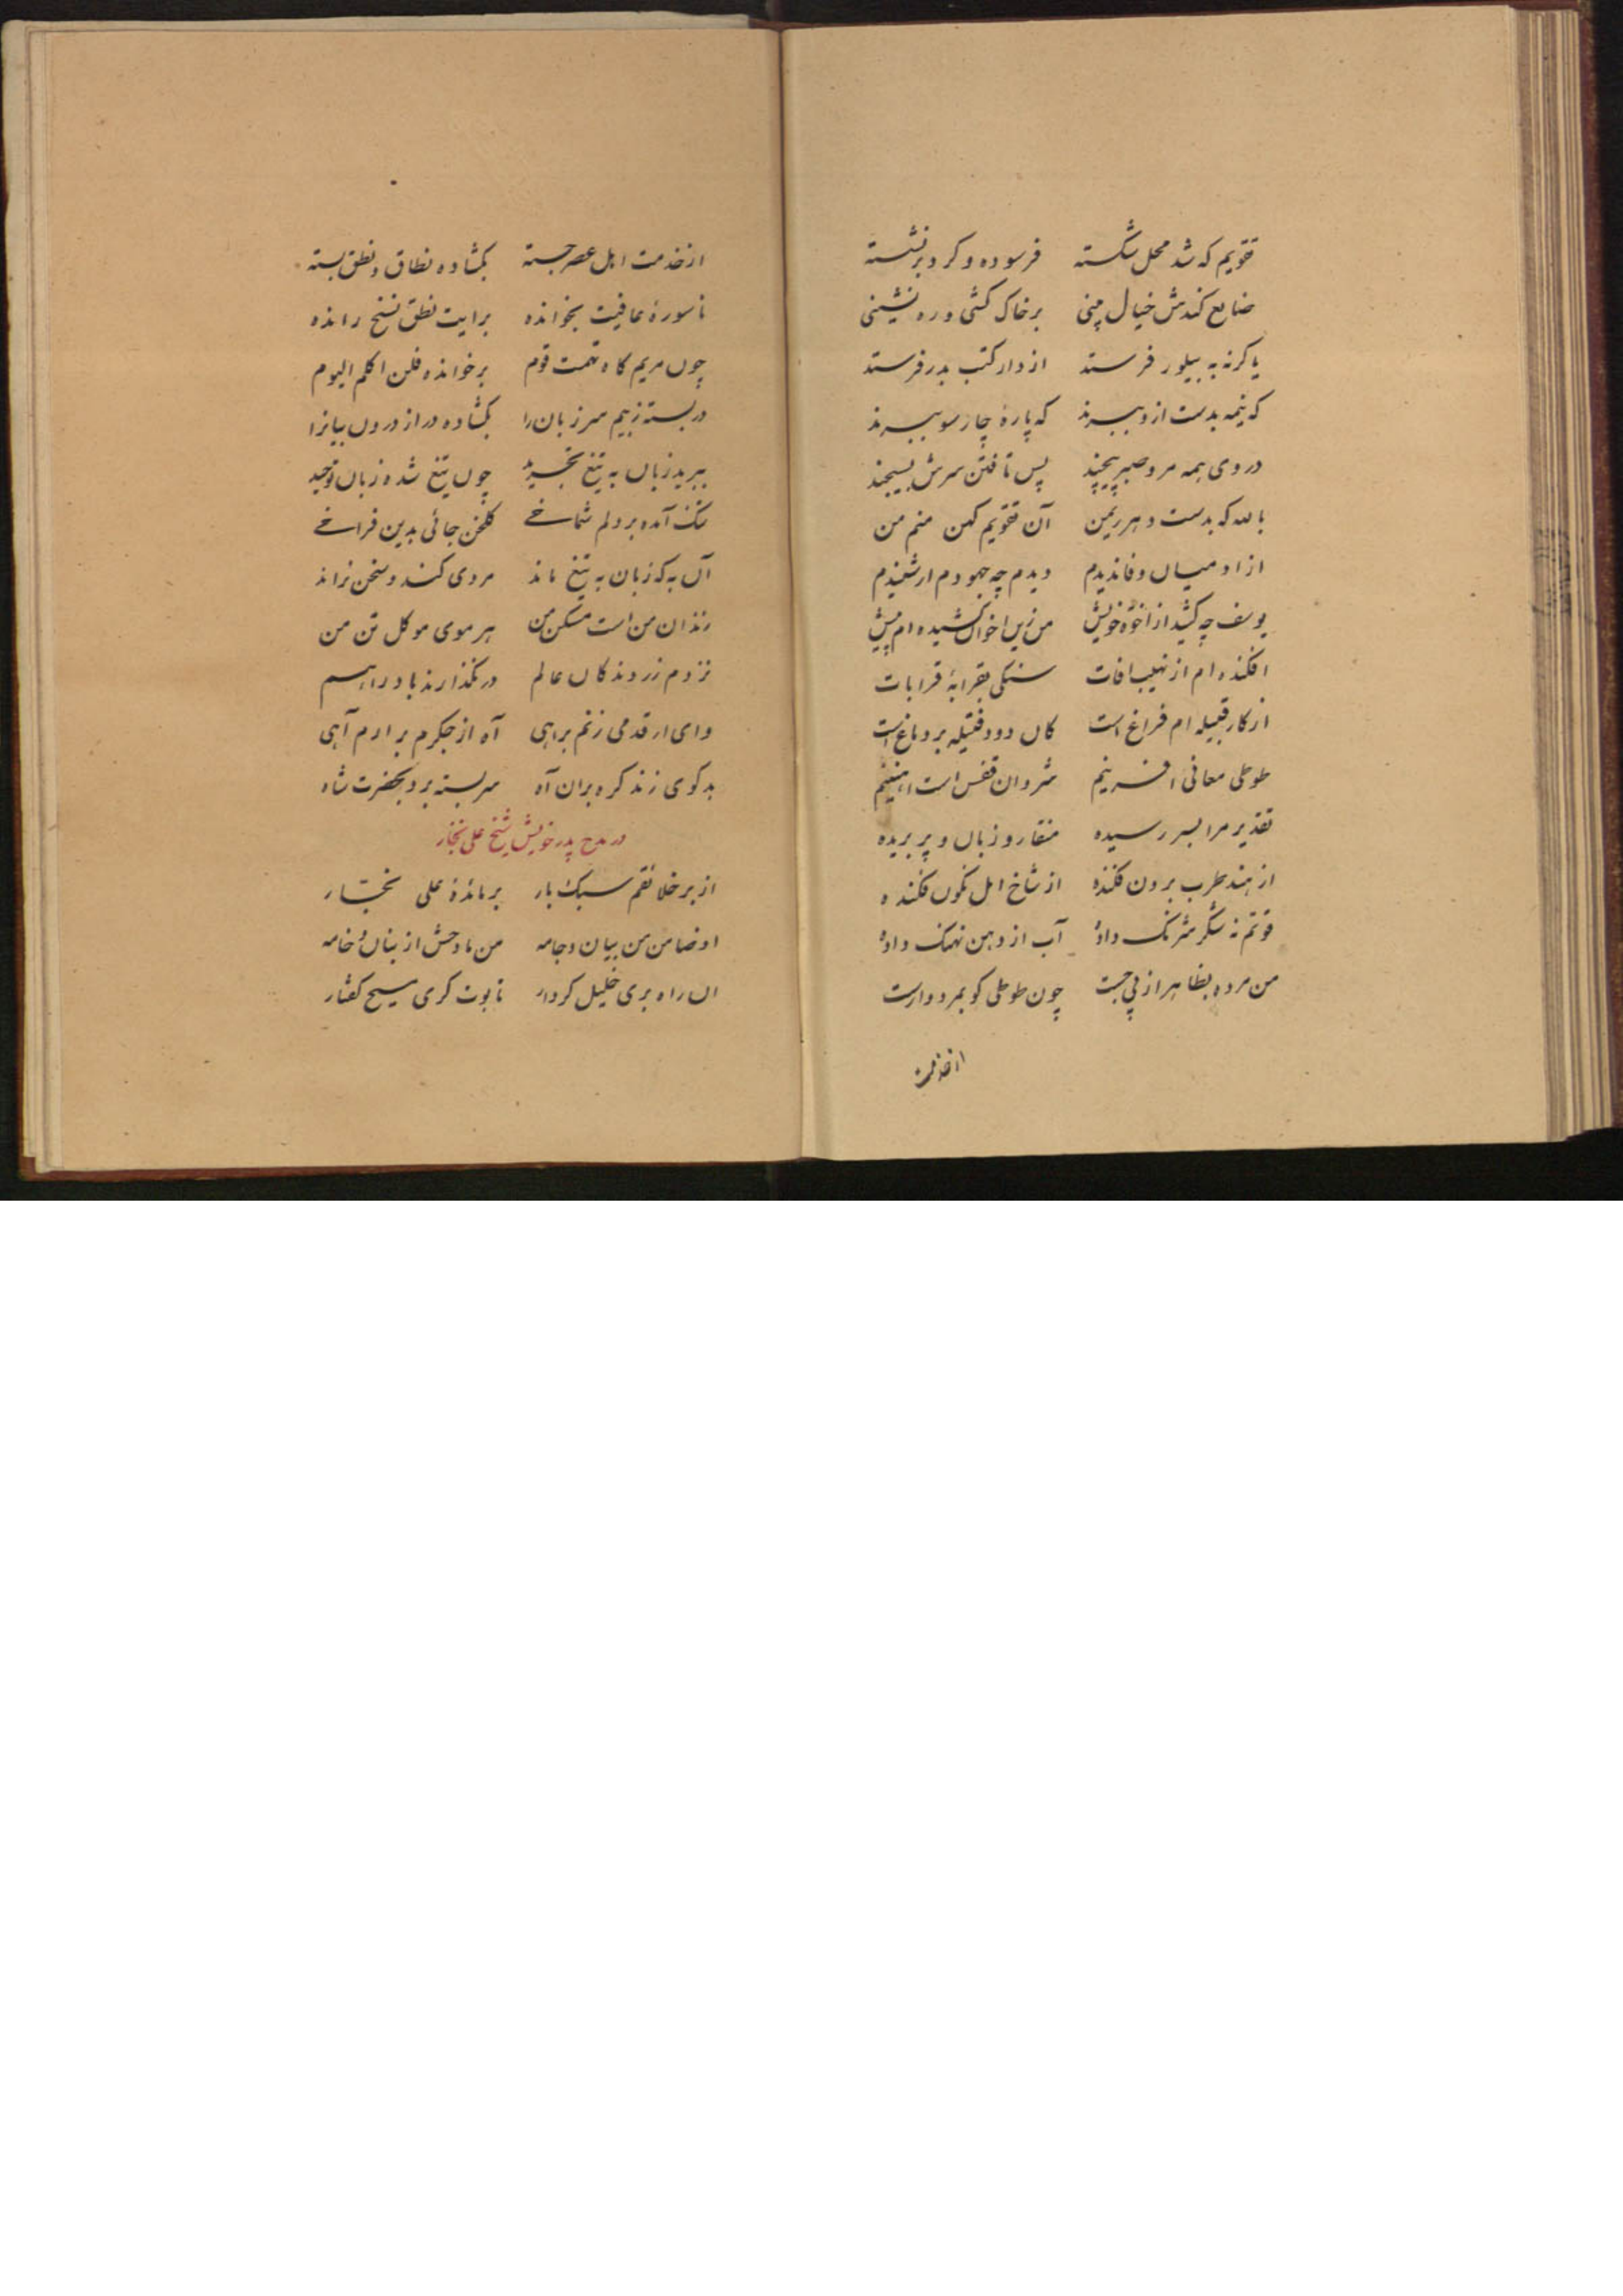 تقویم که شد محل شکسته فرسوده و کرد برنشسته
ضایع کندش خیال بینی برخاک کشی و ره نشینی
یا کرنه به بیلور فرستد از دار کتب بدر فرستد
که نیمه بدست ازو ببرند که پارهٔ چارسو ببرند
در وی همه مر و صبر پیچند پس تافتن سرش بسیجند
بالله که بدست دهر ریمن آن تقویم کهن منم من
ازاد میان وفا ندیدم دیدم چه جهودم ار شنیدم
یوسف چه کشید از اخوه خویش من زین اخوان کشیده ام بیش
افکنده ام از نهیب افات سنکی بقرابهٔ قرابات
از کار قبیله ام فراغ است کان دود فتیله بر دماغ است
طوطی معانی افرینم شروان قفس است اهنینم
تقدیر مرا بسر رسیده منقار و زبان و پر بریده
از هند طرب برون فکنده از شاخ امل نکون فکنده
قوتم نه شکر شرنک داده آب از دهن نهنک داده
من مرده بظاهر از پی جست چون طوطی کو بمرد وارست
از خدمت
از خدمت اهل عصر جسته بکشاده نطاق و نطق بسته
تا سورهٔ عافیت بخوانده برایت نطق نسخ رانده
چون مریم کاه تهمت قوم برخوانده فلن اکلم الیوم
در بسته ز بیم سر زبان را بکشاده در از درون بیانرا
ببرید زبان به تیغ تجرید چون تیغ شده زبان توحید
تنک آمده بر دلم شماخی کلخن جائی بدین فراخی
آن به که زبان به تیغ ماند مردی کند و سخن نراند
زندان من است مسکن من هر موی موکل تن من
نزدم زروندکان عالم در نکذارند باد راهم
وای ار قدمی زنم براهی آه از جکرم برارم آهی
بدکوی زند کره بران آه سربسته برد بحضرت شاه
در مدح پدر خویش شیخ علی نجار
از بر خلائقم سبک بار بر مائدهٔ علی نجّار
او ضامن من ببیان و جامه من مادحش از بنان و خامه
ان راه بری خلیل کردار تابوت کری مسیح کفتار